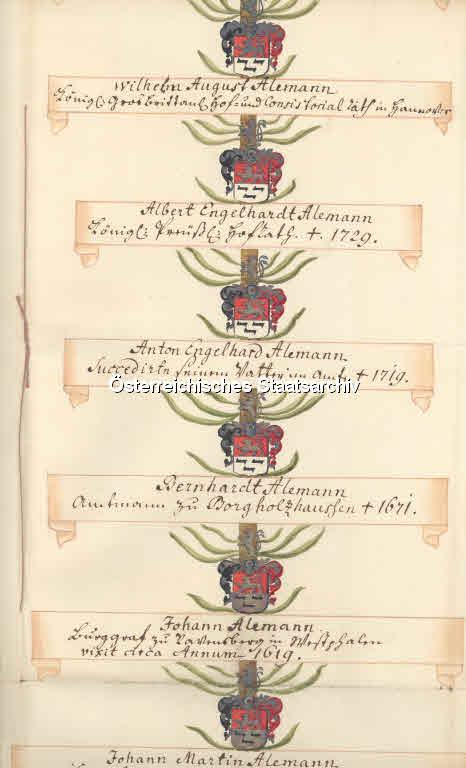 Wilhelm August Alemann
Königl: Grosbrittanl: Hof- und Consistorial Rath in Hannover
Albert Engelhardt Alemann
Königl: Preüßl: Hofrath. †. 1729.
Anton Engelhard Alemann.
Succedirte seinem Vatter im Amte † 1719.
Österreichisches Staatsarchiv
Bernhardt Alemann
Amtmann zu Borgholzhaussen † 1671.
Johann Alemann.
Burggraf zu Ravensberg in Westphalen
vixit circa Annum 1619.
Johann Martin Alemann